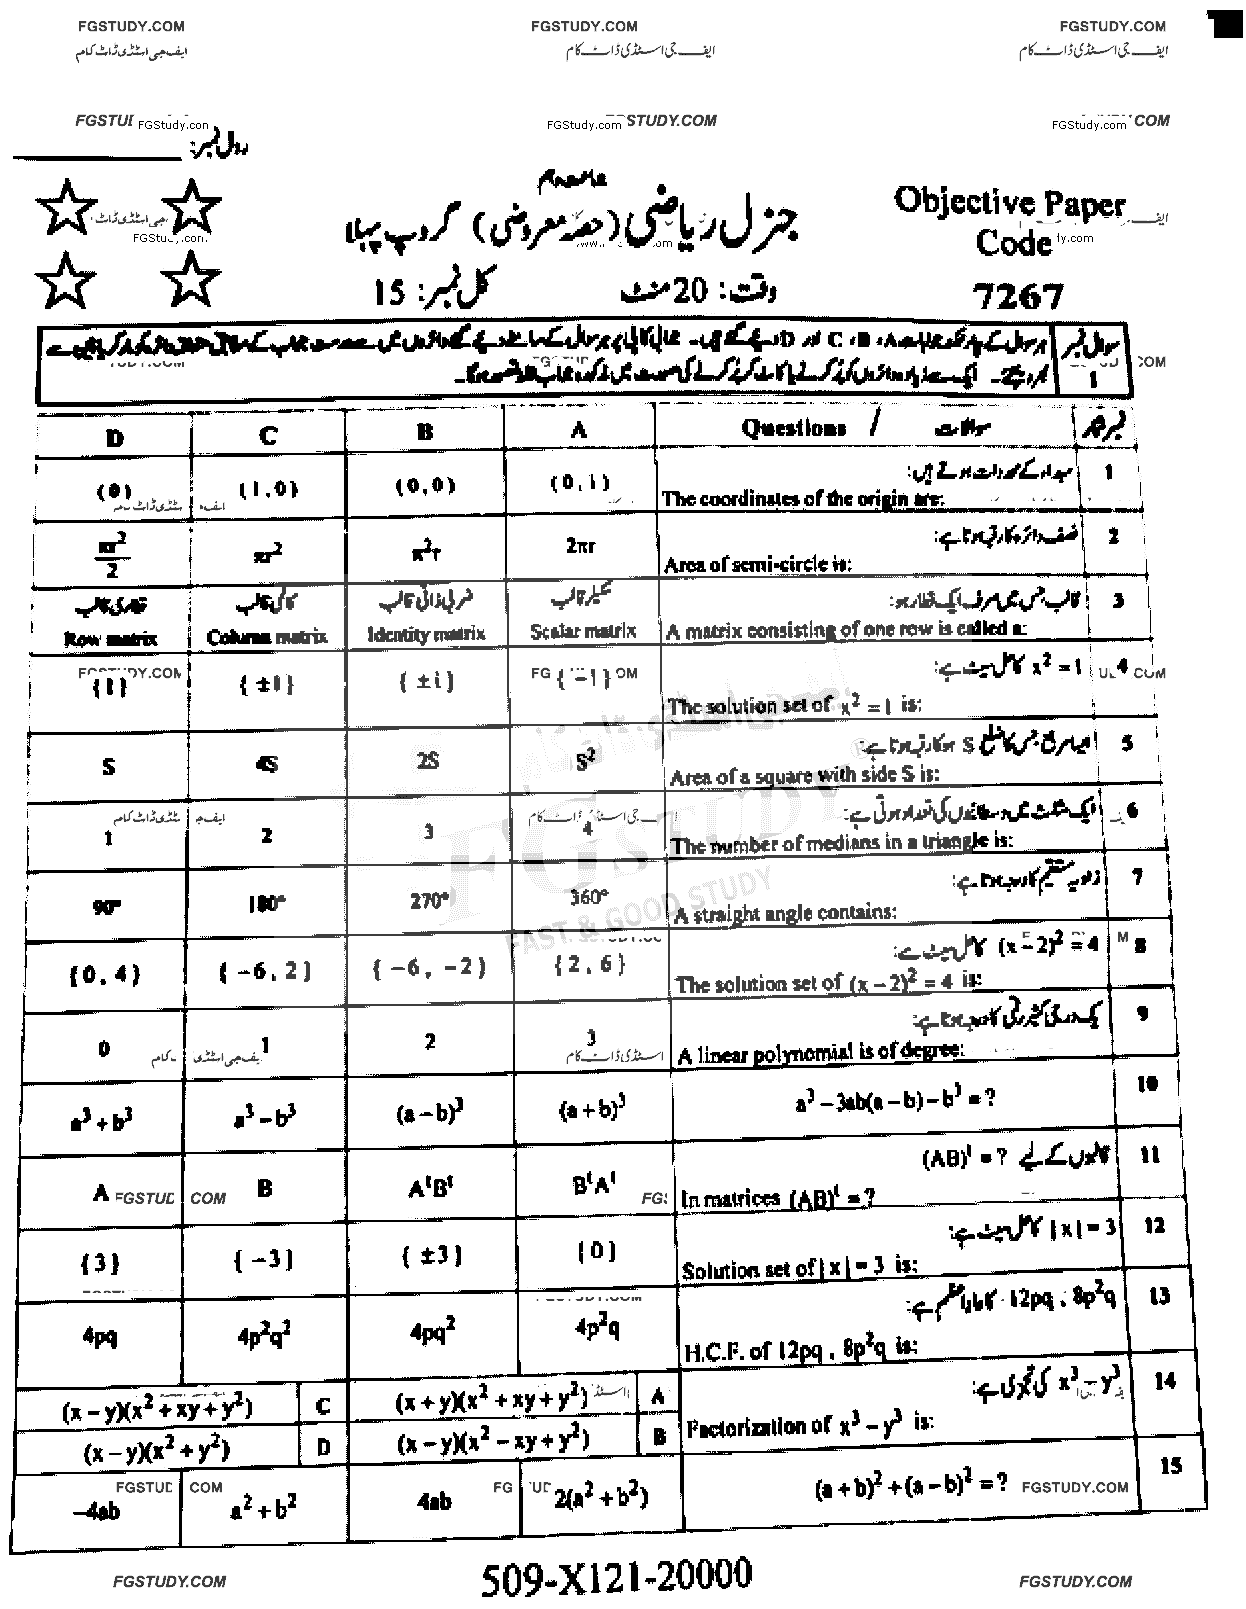 FGSTUDY.COM FGSTUDY.COM FGSTUDY.COM
ایف جی اسٹڈی ڈاٹ کام ایف جی اسٹڈی ڈاٹ کام ایف جی اسٹڈی ڈاٹ کام
FGStudy.com FGStudy.com STUDY.COM FGStudy.com COM
رول نمبر:
جنرل ریاضی (حصہ معروضی) گروپ پہلا
Objective Paper
Code
وقت: 20 منٹ کل نمبر: 15
7267
سوال نمبر 1
ہر سوال کے چار ممکنہ جوابات A، B، C اور D دیے گئے ہیں۔ جوابی کاپی پر ہر سوال کے سامنے دیے گئے دائروں میں سے درست جواب کے مطابق متعلقہ دائرہ کو مارکر یا پین سے
بھر دیجئے۔ ایک سے زیادہ دائروں کو پُر کرنے یا کاٹ کر پُر کرنے کی صورت میں مذکورہ جواب غلط تصور ہوگا۔
D C B A Questions / سوالات نمبر شمار
مبداء کے محددات ہوتے ہیں: 1
(0) (1,0) (0,0) (0,1) The coordinates of the origin are:
نصف دائرہ کا رقبہ ہوتا ہے: 2
πr²/2 πr² π²r 2πr Area of semi-circle is:
قطاری قالب کالمی قالب ضربی ذاتی قالب سکیلر قالب قالب جس میں صرف ایک قطار ہو: 3
Row matrix Column matrix Identity matrix Scalar matrix A matrix consisting of one row is called a:
x² = 1 کا حل سیٹ ہے: 4
{1} {±1} {±i} {−1} The solution set of x² = 1 is:
ایسا مربع جس کا ضلع S ہو کا رقبہ ہوتا ہے: 5
S 4S 2S S² Area of a square with side S is:
ایک مثلث میں وسطانیوں کی تعداد ہوتی ہے: 6
1 2 3 4 The number of medians in a triangle is:
زاویہ مستقیم کا درجہ ہوتا ہے: 7
90° 180° 270° 360° A straight angle contains:
(x − 2)² = 4 کا حل سیٹ ہے: 8
{0, 4} {−6, 2} {−6, −2} {2, 6} The solution set of (x − 2)² = 4 is:
یک درجی کثیر رقمی کا درجہ ہوتا ہے: 9
0 1 2 3 A linear polynomial is of degree:
a³ + b³ a³ − b³ (a − b)³ (a + b)³ a³ − 3ab(a − b) − b³ = ? 10
قالبوں کے لیے (AB)ᵗ = ? 11
A B AᵗBᵗ BᵗAᵗ In matrices (AB)ᵗ = ?
|x| = 3 کا حل سیٹ ہے: 12
{3} {−3} {±3} {0} Solution set of |x| = 3 is:
12pq , 8p²q کا عاد اعظم ہے: 13
4pq 4p²q² 4pq² 4p²q H.C.F. of 12pq , 8p²q is:
x³ − y³ کی تجزی ہے: 14
(x − y)(x² + xy + y²) C (x + y)(x² + xy + y²) A Factorization of x³ − y³ is:
(x − y)(x² + y²) D (x − y)(x² − xy + y²) B
−4ab a² + b² 4ab 2(a² + b²) (a + b)² + (a − b)² = ? 15
FGSTUDY
FAST & GOOD STUDY
509-X121-20000
FGSTUDY.COM FGSTUDY.COM